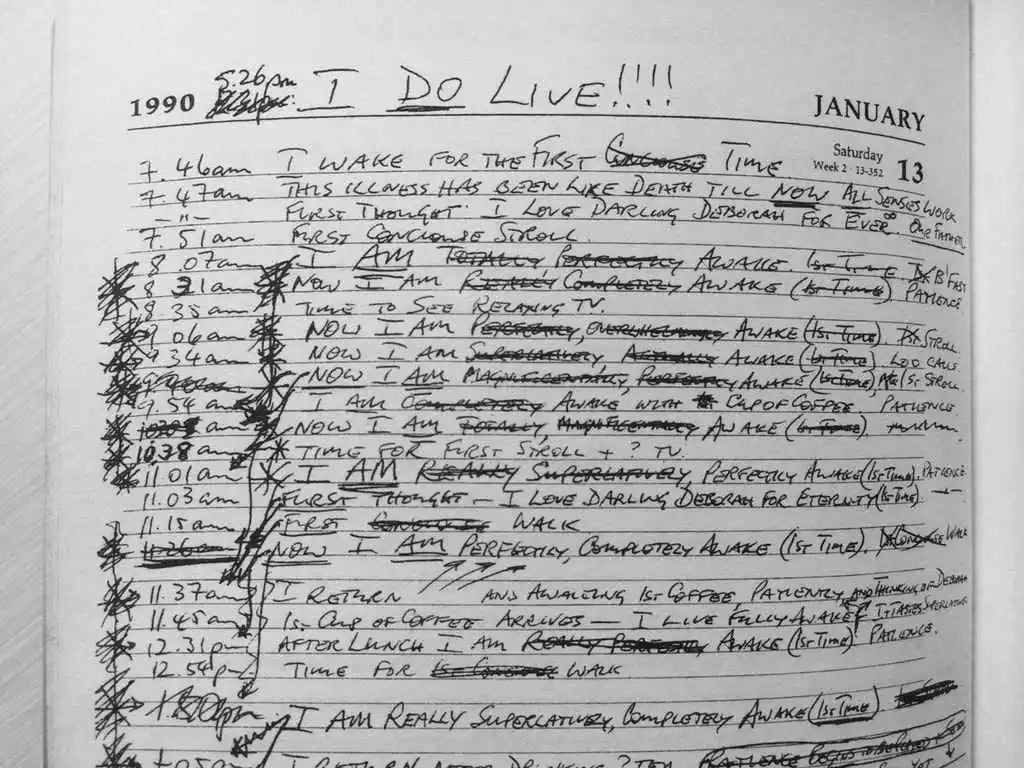 5.26pm I DO LIVE!!!!
1990 JANUARY
Saturday
Week 2 · 13-352 13
7.46am I WAKE FOR THE FIRST CONCIOUSE TIME.
7.47am THIS ILLNESS HAS BEEN LIKE DEATH TILL NOW ALL SENSES WORK
-"- FIRST THOUGHT: I LOVE DARLING DEBORAH FOR EVER OUR FATHER
7.51am FIRST CONCIOUSE STROLL.
8.07am I AM TOTALLY, PERFECTLY AWAKE. 1ST TIME B'FAST
8 31am NOW I AM REALLY COMPLETELY AWAKE (1ST TIME) PATIENCE
8 35am TIME TO SEE RELAXING TV.
9 06am NOW I AM PERFECTLY, OVERWHELMINGLY AWAKE (1ST TIME). STROLL.
9.34am NOW I AM SUPERLATIVELY, ACTUALLY AWAKE (1ST TIME) LOO CALLS
NOW I AM MAGNIFICENTLY, PERFECTLY AWAKE (1ST TIME), STROLL
9.54am I AM COMPLETELY AWAKE WITH CUP OF COFFEE PATIENCE.
NOW I AM TOTALLY, MAGNIFICENTLY AWAKE (1ST TIME).
1038am TIME FOR FIRST STROLL + ? TV.
11.01am I AM REALLY SUPERLATIVELY, PERFECTLY AWAKE (1ST TIME). PATIENCE
11.03am FIRST THOUGHT - I LOVE DARLING DEBORAH FOR ETERNITY (1ST TIME).
11.15am FIRST CONCIOUSE WALK
11.26am NOW I AM PERFECTLY, COMPLETELY AWAKE (1ST TIME). WALK
11.37am I RETURN AND AWAITING 1ST COFFEE, PATIENTLY, AND THINKING OF DEBORAH
11.45am 1ST CUP OF COFFEE ARRIVES - I LIVE FULLY AWAKE SUPERLATIVE
12.31pm AFTER LUNCH I AM REALLY PERFECTLY AWAKE (1ST TIME) PATIENCE.
12.54pm TIME FOR 1ST CONCIOUSE WALK
I AM REALLY SUPERLATIVELY, COMPLETELY AWAKE (1ST TIME)
I RETURN AFTER PATIENCE BEGINS TO BE